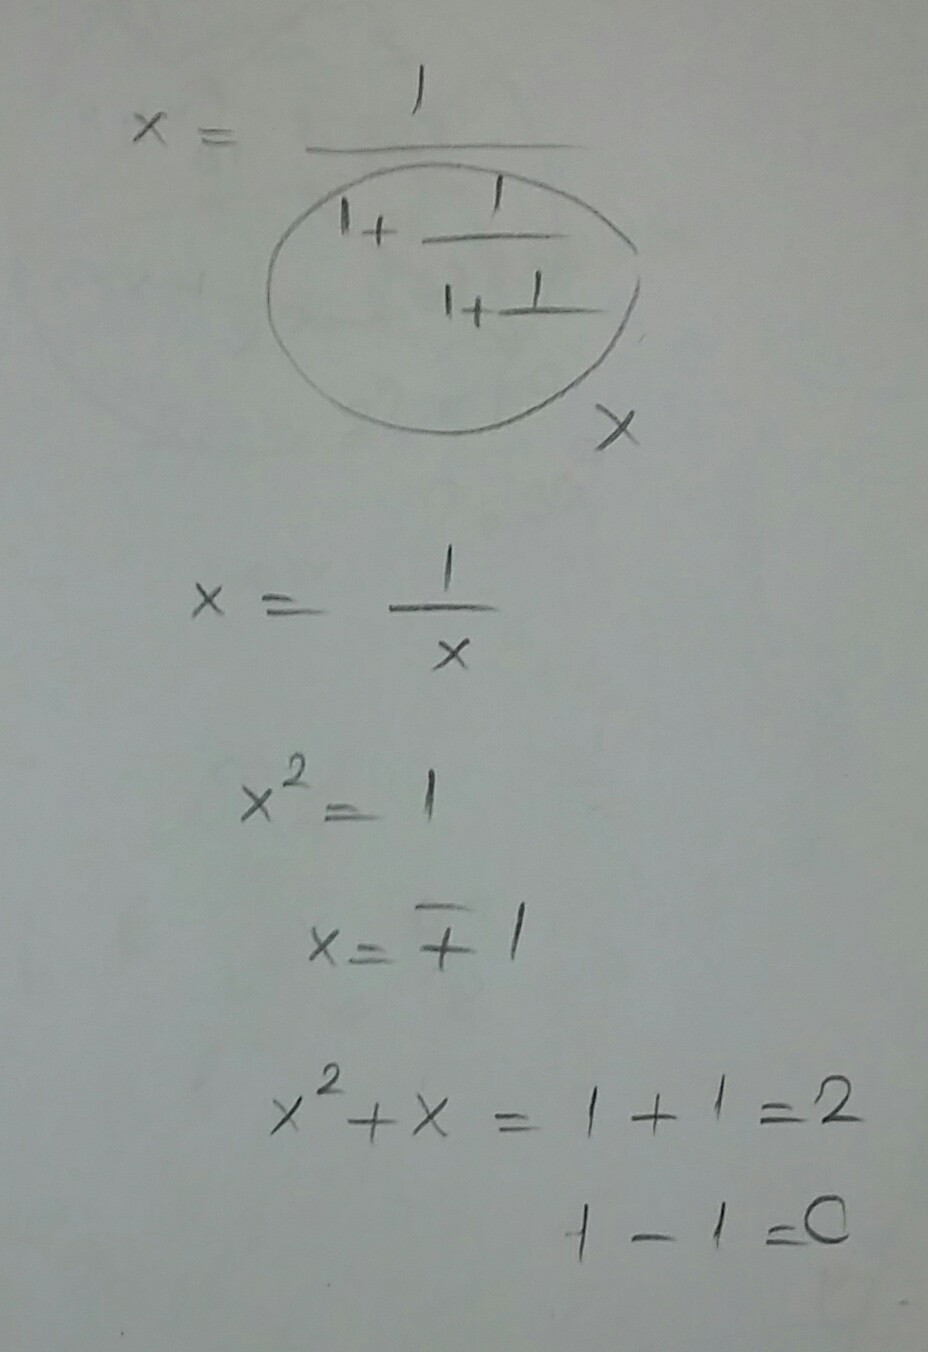 x = 1/(1 + 1/(1 + 1/
x
x = 1/x
x² = 1
x = ∓ 1
x² + x = 1 + 1 = 2
1 - 1 = 0